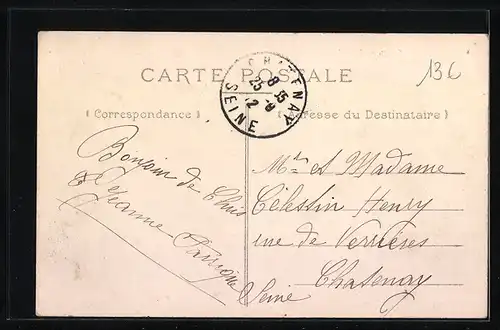 CARTE POSTALE
136
CHATENAY
SEINE
8 35
25 - 2 - 9
( Correspondance )
( Adresse du Destinataire )
Bonjour de
Jeanne
Mr et Madame
Célestin Henry
rue de Verrières
Chatenay
Seine